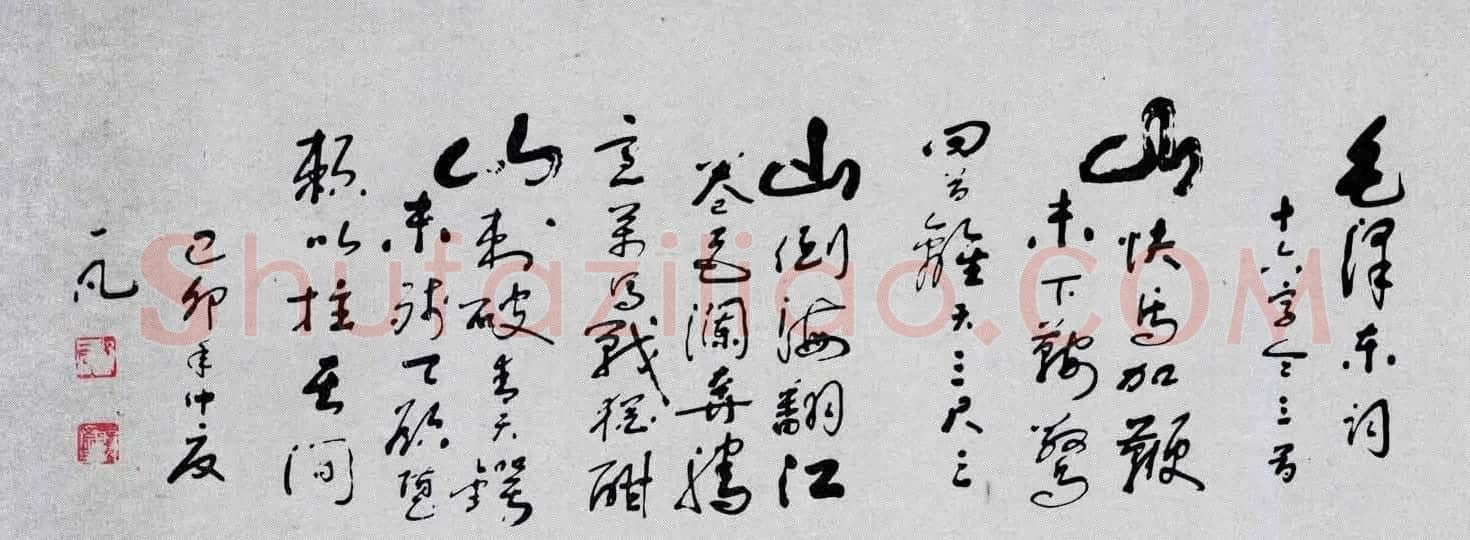 毛泽东词
十六字令三首
山快马加鞭
未下鞍驚
回首離天三尺三
山倒海翻江
卷巨澜奔腾
急万马戰犹酣
山刺破青天鍔
未残天欲堕
赖以拄其间
己卯年仲夏
一凡
Shufaziliao.COM